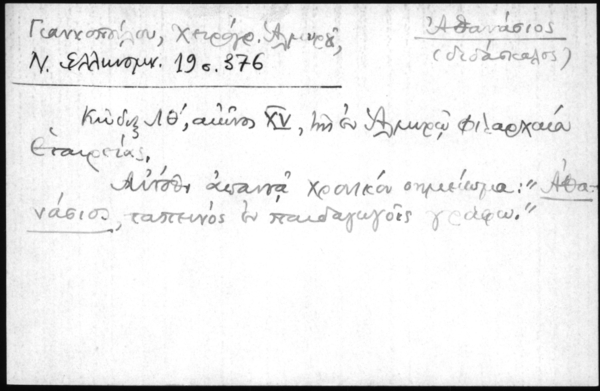 Γιαννοπούλου, Χειρόγρ. Ἁλμυροῦ,
Ν. Ἑλληνομν. 19 σ. 376
Ἀθανάσιος
(διδάσκαλος)
Κῶδιξ ΛΘ', αἰῶνος XV, τῆς ἐν Ἁλμυρῷ Φιλαρχαίου
Ἑταιρείας.
Αὐτόθι ἀπαντᾷ χρονικὸν σημείωμα: "Ἀθα-
νάσιος, ταπεινὸς ἐν παιδαγωγοῖς γράφω."